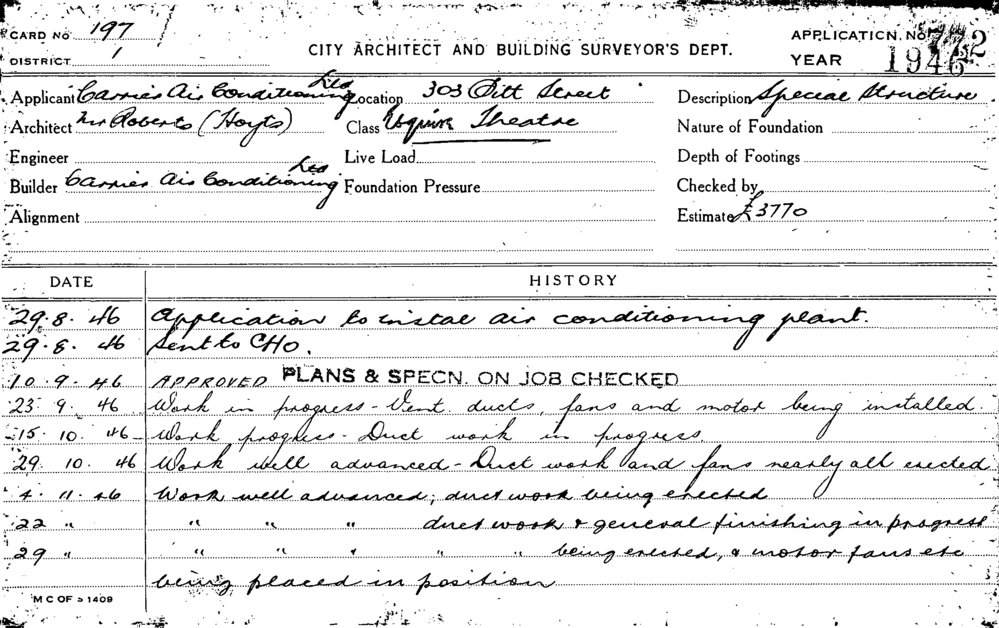 CARD No. 197
DISTRICT 1
CITY ARCHITECT AND BUILDING SURVEYOR'S DEPT.
APPLICATION No. 772
YEAR 1946
Applicant Carrier Air Conditioning Ltd
Location 303 Pitt Street
Description Special Structure
Architect Mr Roberts (Hoyts)
Class Esquire Theatre
Nature of Foundation
Engineer
Live Load
Depth of Footings
Builder Carrier Air Conditioning Ltd
Foundation Pressure
Checked by
Alignment
Estimate £3770
DATE HISTORY
29.8.46 Application to instal air conditioning plant.
29.8.46 Sent to CHO.
10.9.46 APPROVED PLANS & SPECN. ON JOB CHECKED
23.9.46 Work in progress - Vent ducts, fans and motor being installed.
15.10.46 Work progress - Duct work in progress.
29.10.46 Work well advanced - Duct work and fans nearly all erected
4.11.46 Work well advanced; duct work being erected
22 " " " " duct work & general finishing in progress
29 " " " " " " being erected, & motor fans etc
being placed in position
M C OF S 1409